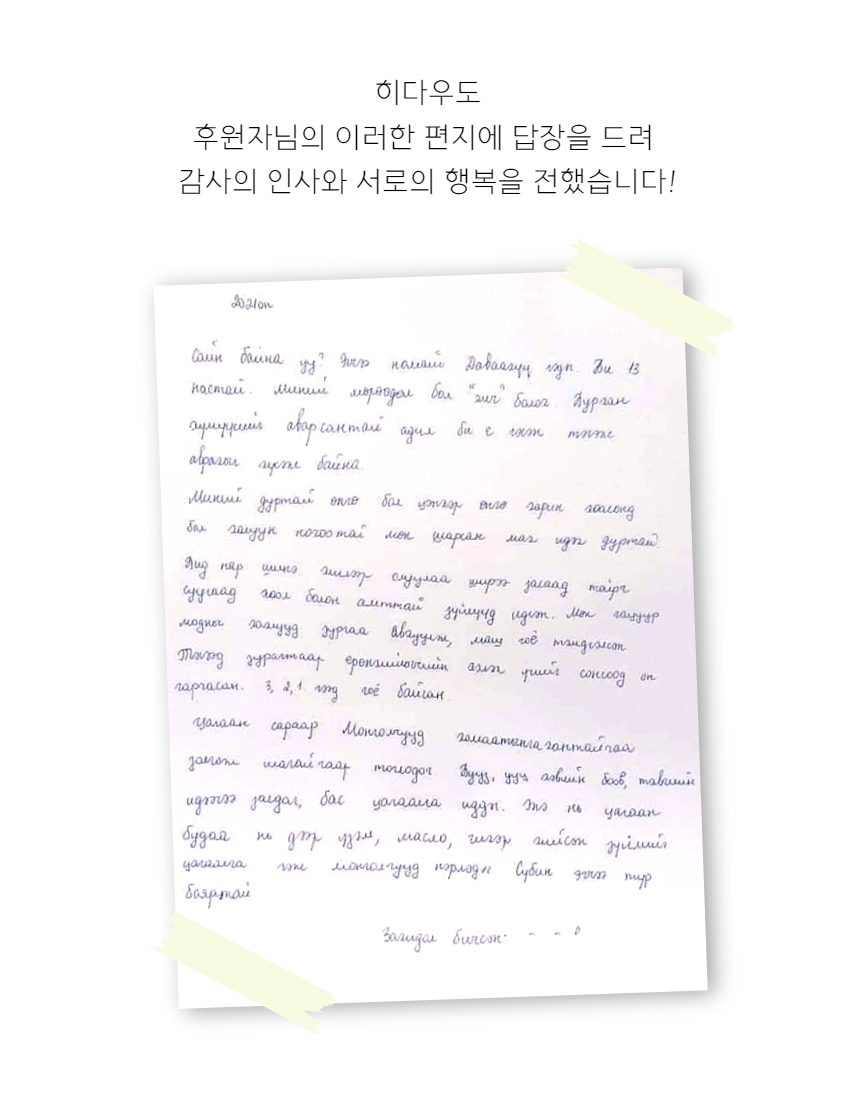 히다우도
후원자님의 이러한 편지에 답장을 드려
감사의 인사와 서로의 행복을 전했습니다!
2021он
Сайн байна уу? Эгчээ намайг Даваасүү гэдэг. Би 13
настай. Миний мөрөөдөл бол "эмч" болог. Дурган
хүмүүсийг аварсантай адил би ч гэсэн тэгэж
аврагы хүсэж байна.
Миний дуртай өнгө бол цэнхэр өнгө харин хоолонд
бол хошуун ногоотай мөн шарсан мах идэх дуртай
Бид нар шинэ жилээр сууцаа ширээ засаад тойрч
суугаад хоол болон амттай зүйлүүд идсэн. Мөн гацуур
модныг хоолшууд зургаа авхуулж, маш гоё тэмдэглэсэн.
Тэгээд зурагтаар ерөнхийлөгчийн хэлэх үгийг сонсоод он
гаргасан. 3, 2, 1 гээд гоё байсан.
Цагаан сараар Монголчууд хамаатангахантайгаа
золгож шагайгаар тоглодог. Бууз, ууц хэвийн боов, тавгийн
идээгээ засдаг, бас цагаалга иддэг. Энэ нь цагаан
будаа нь дээр үзэм, масло, чихэр хийсэн зүйлийг
цагаалга гэж монголчууд нэрлэдэг Субин эгчээ түр
баяртай
Захидал бичсэн: